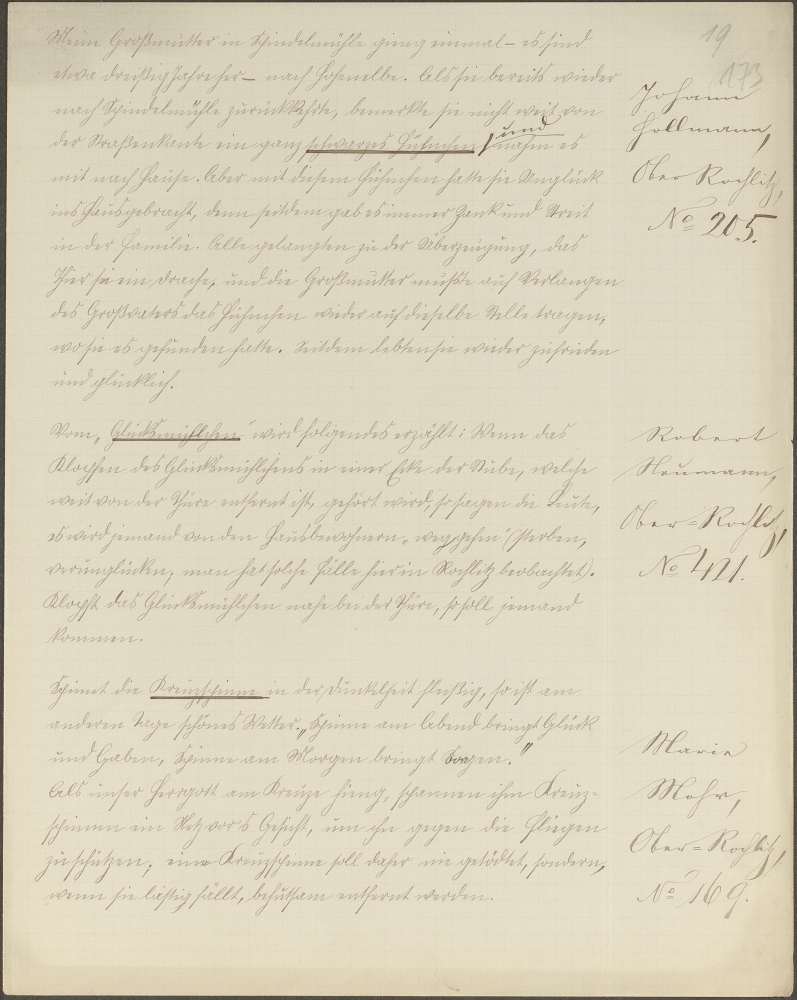 19
173
Meine Großmutter in Spindelmühle gieng einmal – es sind
etwa dreißig Jahre her – nach Hohenelbe. Als sie bereits wieder
nach Spindelmühle zurückkehrte, bemerkte sie nicht weit von
der Straßenkante ein ganz schwarzes Hühnchen und nahm es
mit nach Hause. Aber mit diesem Hühnchen hatte sie Unglück
ins Haus gebracht, denn seitdem gab es immer Zank und Streit
in der Familie. Alle gelangten zu der Überzeugung, das
Thier sei ein Drache, und die Großmutter mußte auf Verlangen
des Großvaters das Hühnchen wieder auf dieselbe Stelle tragen,
wo sie es gefunden hatte. Seitdem lebten sie wieder zufrieden
und glücklich.
Johann
Hollmann,
Ober Rochlitz,
No 205.
Vom „Glücksmühlchen" wird folgendes erzählt: Wenn das
Klopfen des Glücksmühlchens in einer Ecke der Stube, welche
weit von der Thüre entfernt ist, gehört wird, so sagen die Leute,
es wird jemand von den Hausbewohnern „weggehen" (sterben,
verunglücken, man hat solche Fälle hier in Rochlitz beobachtet).
Klopft das Glücksmühlchen nahe bei der Thüre, so soll jemand
kommen.
Robert
Neumann,
Ober-Rochlitz,
No 421.
Spinnt die Kreuzspinne in der Dunkelheit fleißig, so ist am
anderen Tage schönes Wetter. „Spinne am Abend bringt Glück
und Gaben, Spinne am Morgen bringt Sorgen."
Als unser Herrgott am Kreuze hieng, spannen ihm Kreuz-
spinnen ein Netz vor's Gesicht, um ihn gegen die Fliegen
zu schützen; eine Kreuzspinne soll daher nie getödtet, sondern,
wenn sie lästig fällt, behutsam entfernt werden.
Marie
Mohr,
Ober-Rochlitz,
No 169.